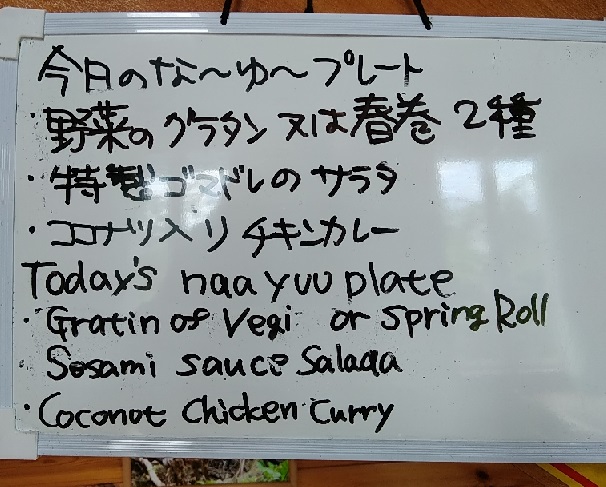 今日のな〜ゆ〜プレート
・野菜のグラタン又は春巻2種
・特製ゴマドレのサラタ
・ココナツ入リチキンカレー
Today's naayuu plate
・Gratin of Vegi or Spring Roll
Sosami sauce Salada
・Coconot Chicken Curry